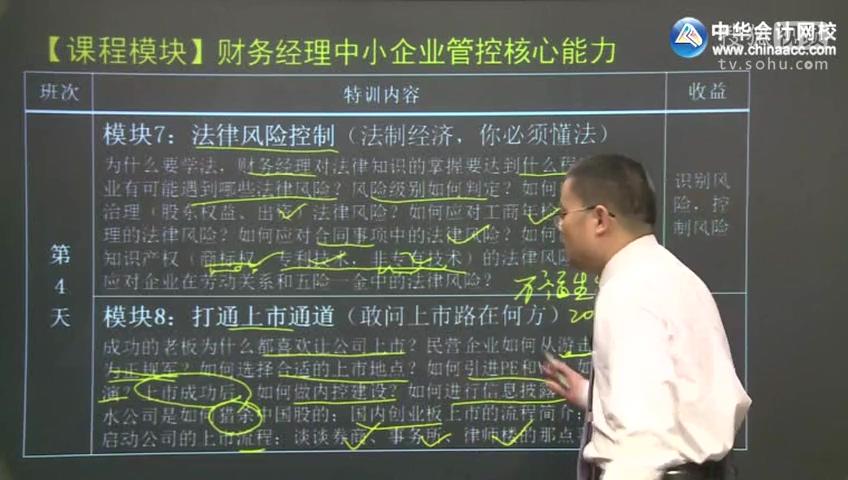 中华会计网校
www.chinaacc.com
tv.sohu.com
【课程模块】财务经理中小企业管控核心能力
班次
特训内容
收益
第4天
模块7：法律风险控制（法制经济，你必须懂法）
为什么要学法，财务经理对法律知识的掌握要达到什么程
业有可能遇到哪些法律风险？风险级别如何判定？如何
治理（股东权益、出资）法律风险？如何应对工商年检
理的法律风险？如何应对合同事项中的法律风险？如何
知识产权（商标权、专利技术，非专有技术）的法律风
应对企业在劳动关系和五险一金中的法律风险？
识别风
险，控
制风险
模块8：打通上市通道（敢问上市路在何方）
20
成功的老板为什么都喜欢让公司上市？民营企业如何从游击
为正规军？如何选择合适的上市地点？如何引进PE和
演？上市成功后，如何做内控建设？如何进行信息披露
水公司是如何猎杀中国股的；国内创业板上市的流程简介；
启动公司的上市流程；谈谈券商、事务所、律师楼的那点